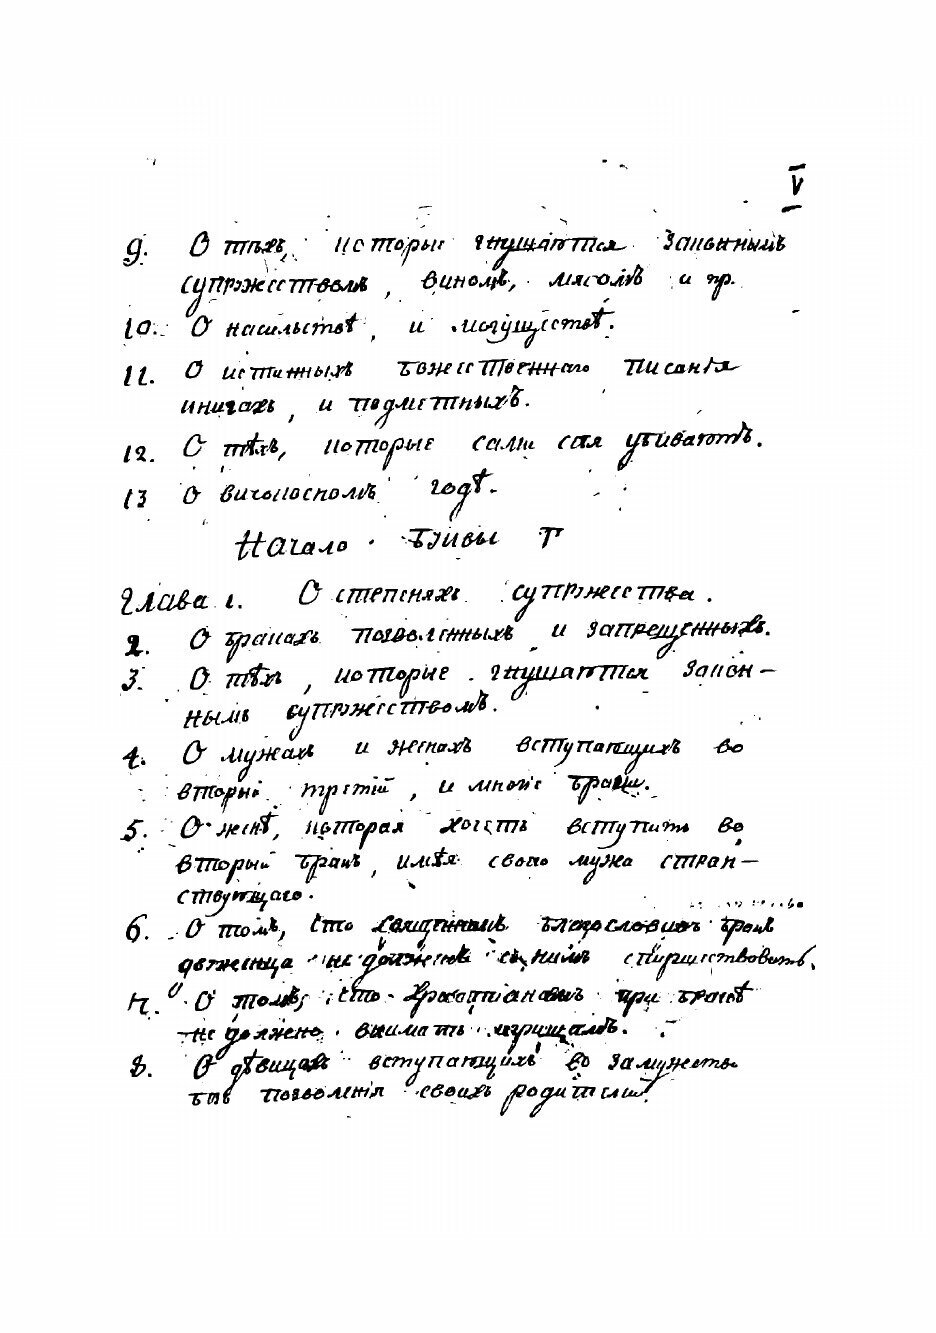 V
9. О тѣхъ, которые гнушаются законнымъ
супружествомъ, виномъ, мясомъ и пр.
10. О насильствѣ, и могуществѣ.
11. О истинныхъ божественнаго писанія
книгахъ, и подметныхъ.
12. О тѣхъ, которые сами себя убиваютъ.
13 О високосномъ годѣ.
Начало буквы Г
Глава 1. О степеняхъ супружества.
2. О бракахъ позволенныхъ и запрещенныхъ.
3. О тѣхъ, которые гнушаются закон-
нымъ супружествомъ.
4. О мужахъ и женахъ вступающихъ во
вторый третій, и многіе браки.
5. О женѣ, которая хочетъ вступить во
вторый бракъ, имѣя своего мужа стран-
ствующаго.
6. О томъ, что священникъ благословивъ бракъ
двоженца не долженъ съ нимъ спиршествовать.
7. О томъ, что Христіанамъ при бракѣ
не должно внимать игрищамъ.
8. О дѣвицахъ вступающихъ во замужество
безъ позволенія своихъ родителей.